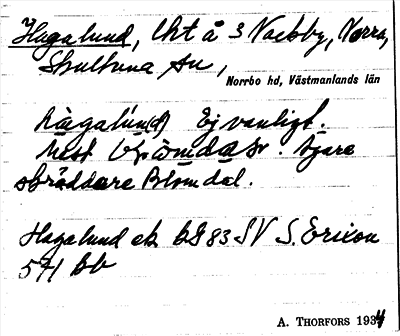 Hagalund, lht å 3 Vackby, Norra,
Skultuna sn,
Norrbo hd, Västmanlands län
hàgalún(d) Ej vanligt.
Mest Ejare
skräddare Blomdal.
Hagalund ek bl 83 SV S. Ericson
571 bb
A. THORFORS 1934